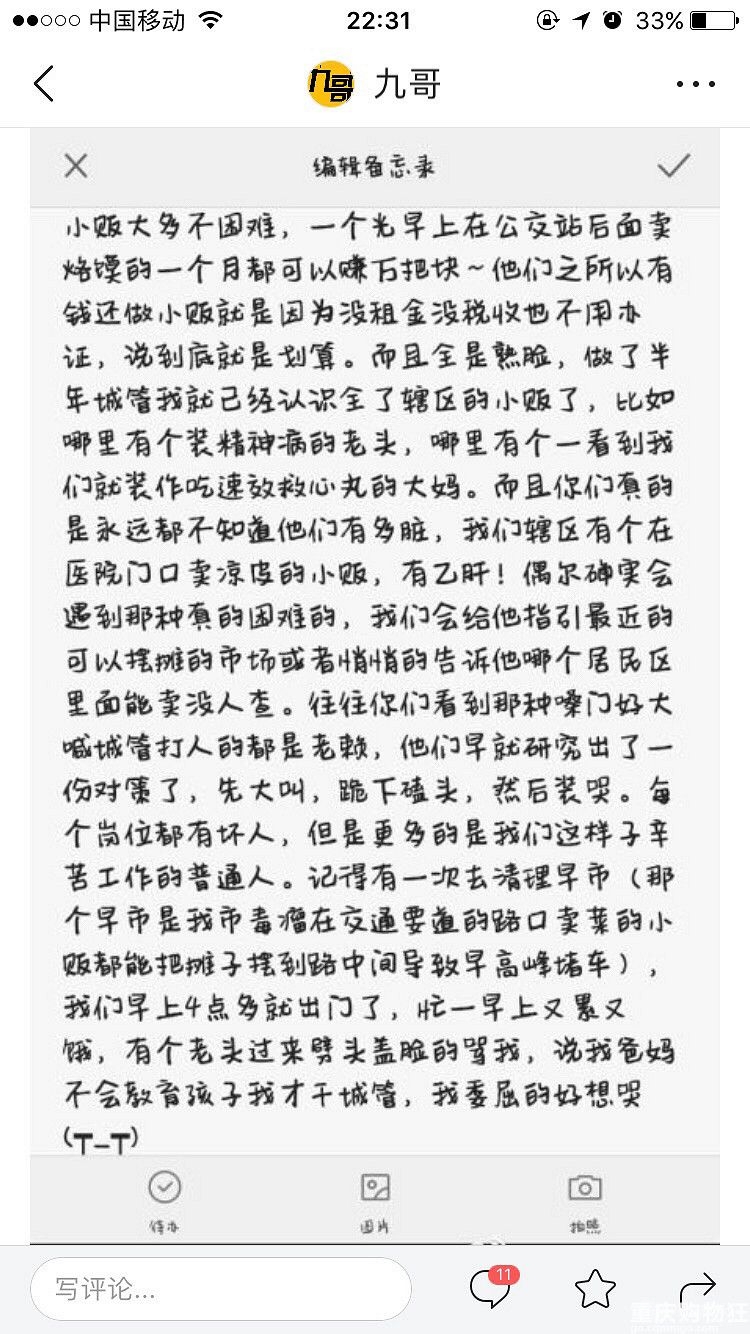 中国移动 22:31 33%
九哥 九哥
编辑备忘录
小贩大多不困难，一个光早上在公交站后面卖
烙馍的一个月都可以赚万把块～他们之所以有
钱还做小贩就是因为没租金没税收也不用办
证，说到底就是划算。而且全是熟脸，做了半
年城管我就已经认识全了辖区的小贩了，比如
哪里有个装精神病的老头，哪里有个一看到我
们就装作吃速效救心丸的大妈。而且你们真的
是永远都不知道他们有多脏，我们辖区有个在
医院门口卖凉皮的小贩，有乙肝！偶尔确实会
遇到那种真的困难的，我们会给他指引最近的
可以摆摊的市场或者悄悄的告诉他哪个居民区
里面能卖没人查。往往你们看到那种嗓门好大
喊城管打人的都是老赖，他们早就研究出了一
份对策了，先大叫，跪下磕头，然后装哭。每
个岗位都有坏人，但是更多的是我们这样子辛
苦工作的普通人。记得有一次去清理早市（那
个早市是我市毒瘤在交通要道的路口卖菜的小
贩都能把摊子摆到路中间导致早高峰堵车），
我们早上4点多就出门了，忙一早上又累又
饿，有个老头过来劈头盖脸的骂我，说我爸妈
不会教育孩子我才干城管，我委屈的好想哭
(┬_┬)
待办 图片 拍照
写评论... 11
重庆购物狂